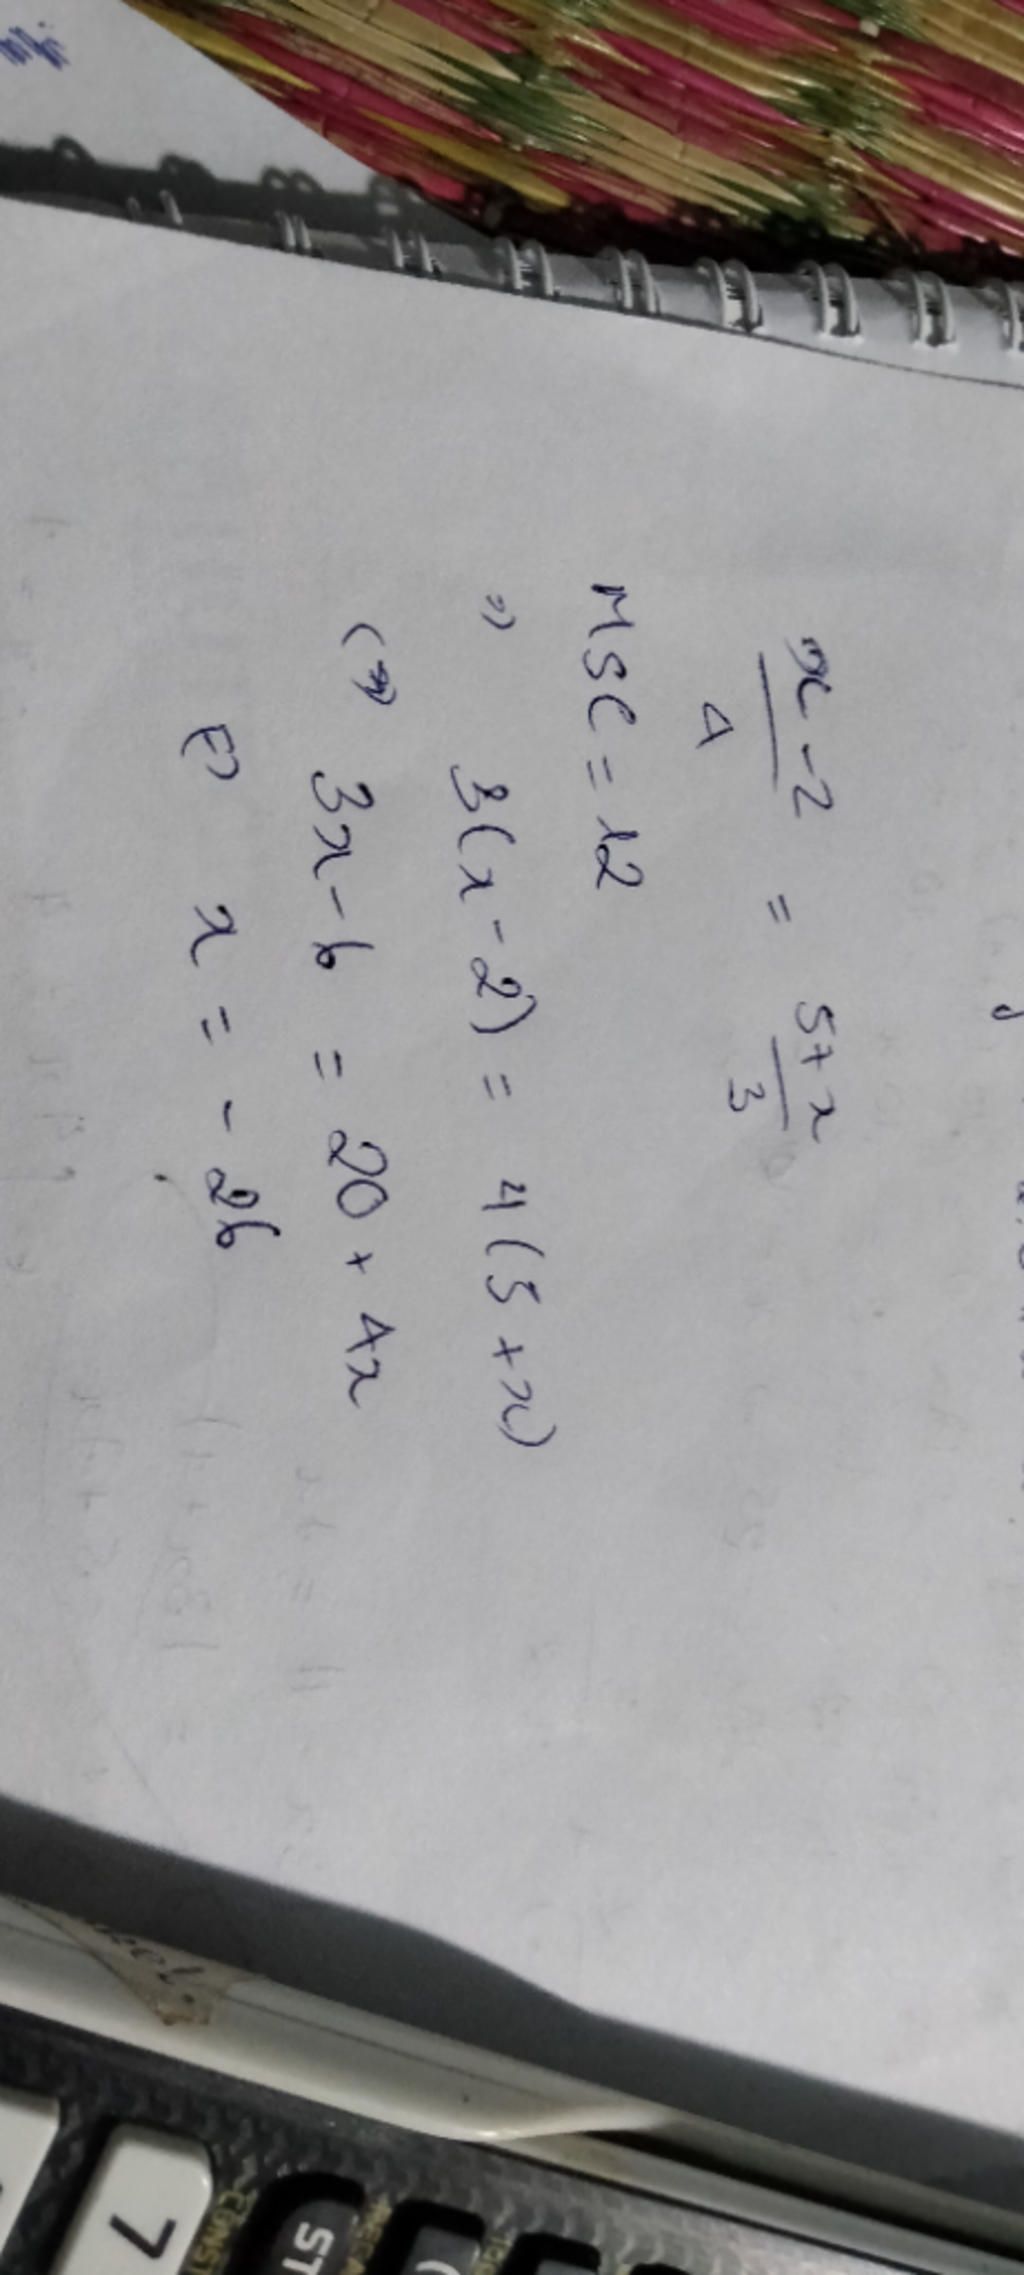 x - 2 = 5 + x
4 3
MSC = 12
=> 3(x - 2) = 4(5 + x)
(=> 3x - 6 = 20 + 4x
x = - 26
7
ST
CONST